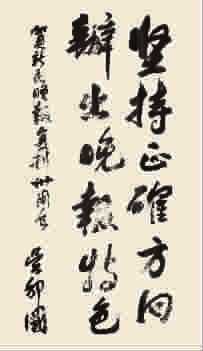 坚持正确方向
辦出晚报特色
贺新民晚报复刊卅周年